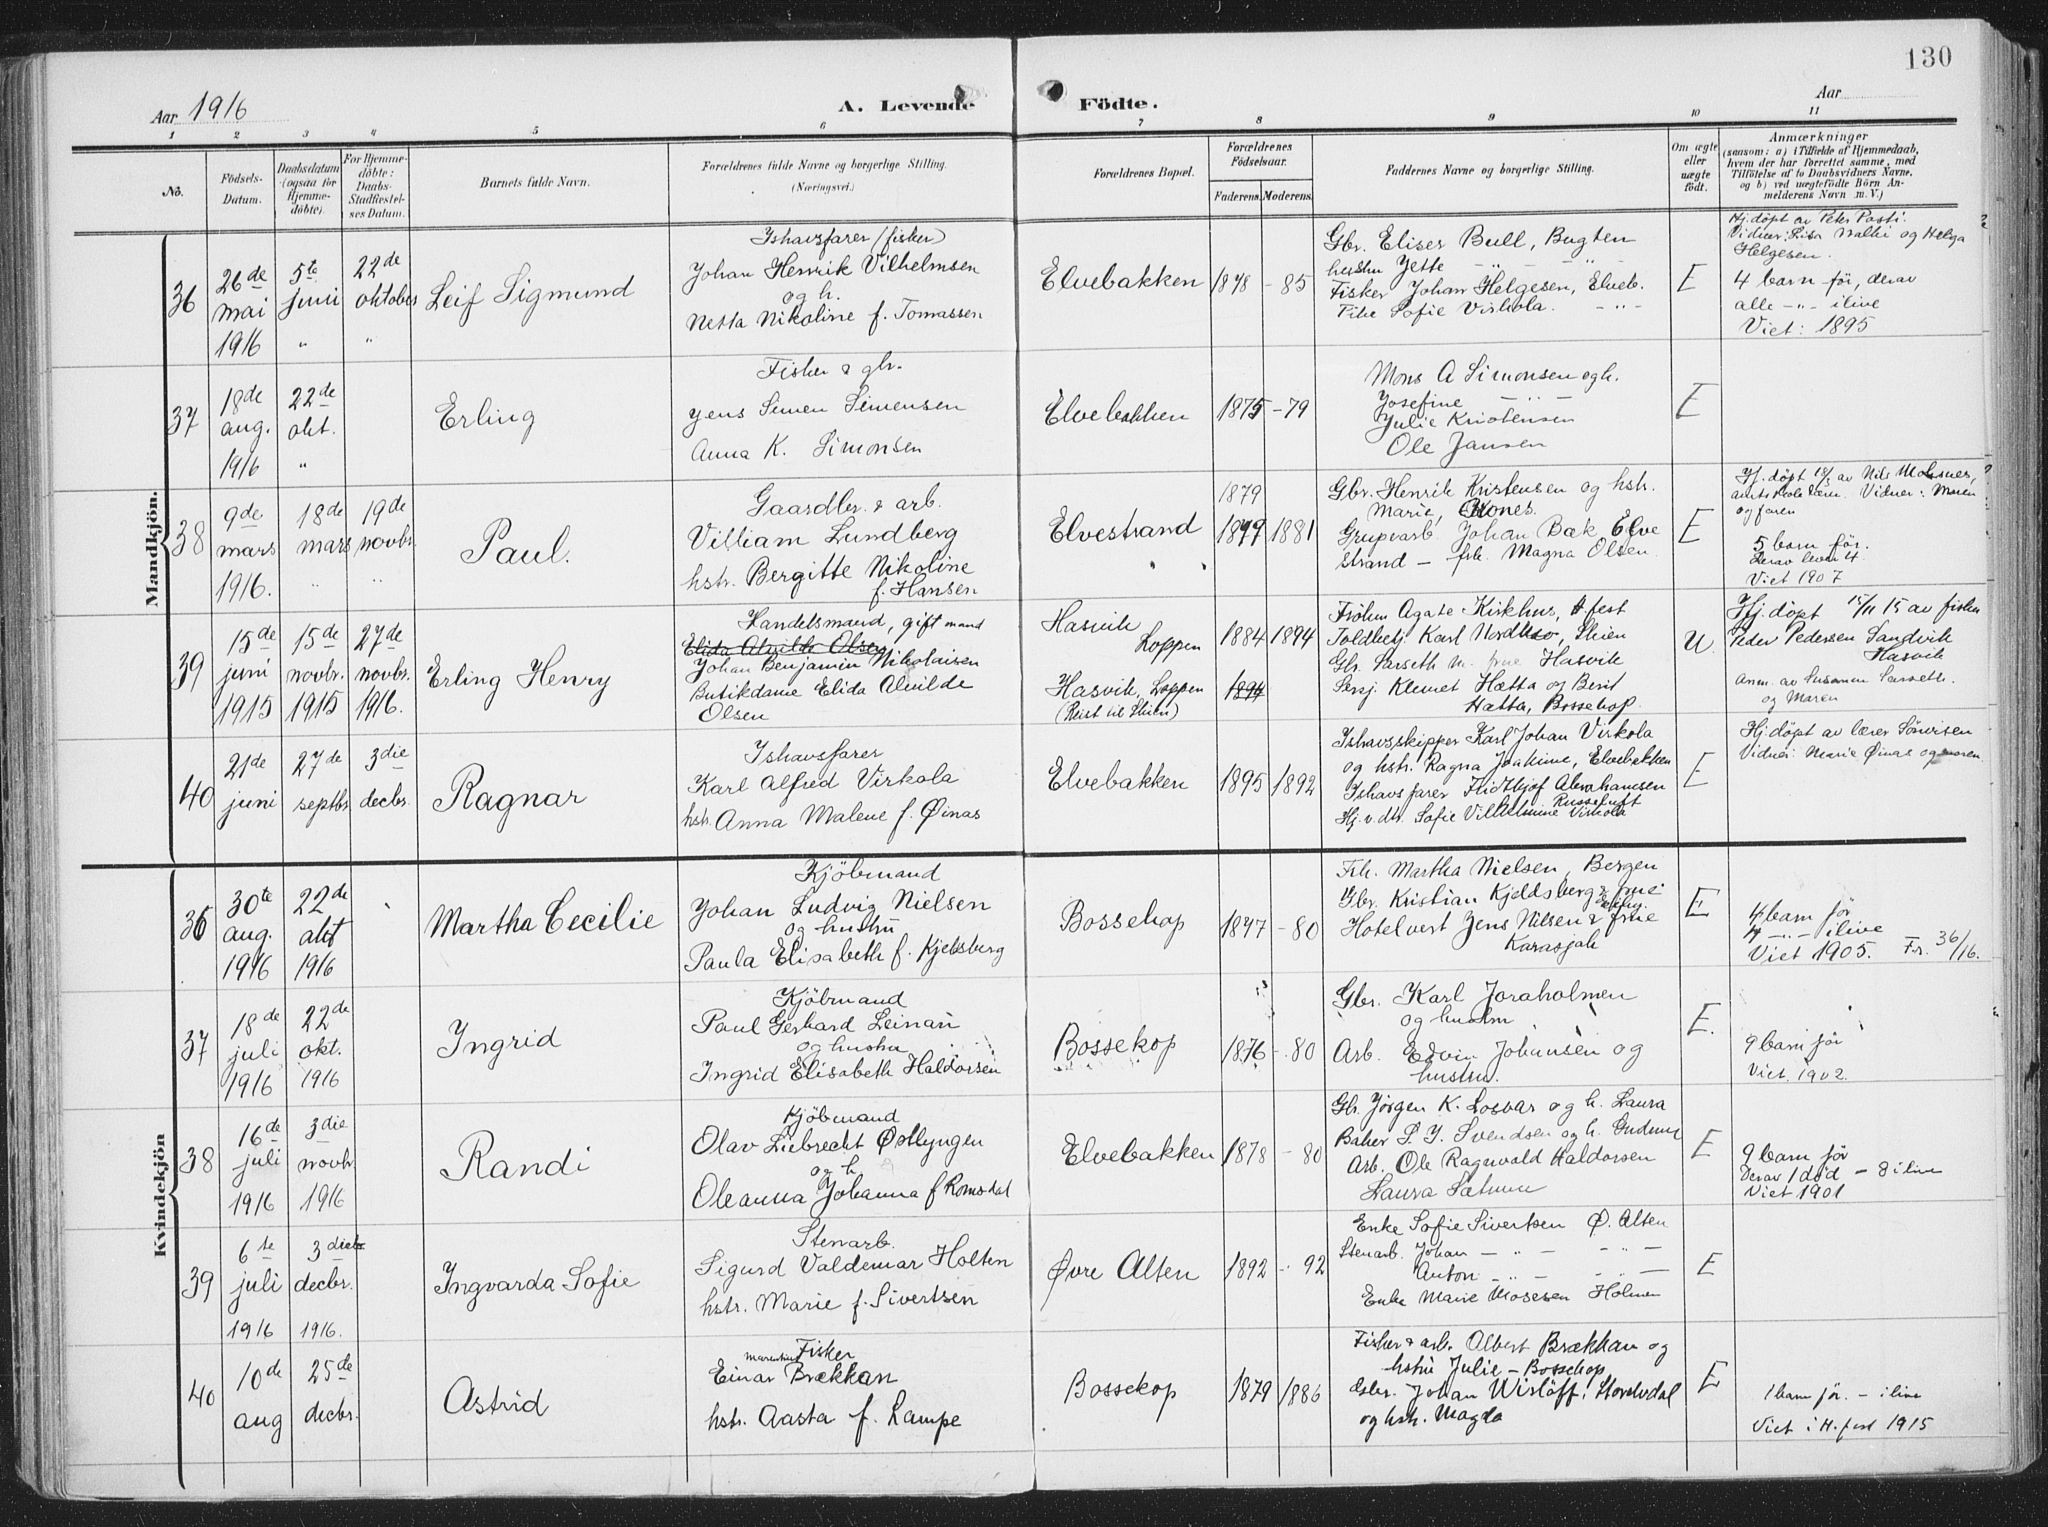 130
Aar 1916
A. Levende Födte.
Aar
1 2 3 4 5 6 7 8 9 10 11
No.
Födsels-Datum.
Daabsdatum (ogsaa for Hjemme-döbte).
For Hjemme-döbte: Daabs-Stadfæstel-ses Datum.
Barnets fulde Navn.
Forældrenes fulde Navne og borgerlige Stilling. (Næringsvei.)
Forældrenes Bopæl.
Forældrenes Födselsaar.
Faderens. Moderens.
Faddernes Navne og borgerlige Stilling.
Om ægte eller uægte födt.
Anmærkninger (saasom: a) i Tilfælde af Hjemmedaab, hvem der har forrettet samme, med Tilföielse af to Daabsvidners Navne, og b) ved uægtefödte Börn An-melderens Navn m. V.)
Mandkjön.
36
26de mai 1916
5te juni "
22de oktober "
Leif Sigmund
Ishavsfarer (fisker)
Johan Henrik Vilhelmsen
og h.
Netta Nikoline f. Tomassen
Elvebakken
1878 - 85
Gbr. Eliser Bull, Bugten
hustru Jette - " - - " -
Fisker Johan Helgesen, Elveb.
Pike Sofie Virkola. - " -
E
Hj. døpt av Peter Posti.
Vidner: Lisa Walki og Helga
Helgesen.
4 barn før, derav
alle - " - ilive
Viet: 1895
37
18de aug. 1916
22de okt. "
Erling
Fisker & gbr.
Jens Simen Simensen
Anna K. Simonsen
Elvebakken
1875 - 79
Mons A Simonsen og h.
Josefine - " -
Julie Kristensen
Ole Jansen
E
38
9de mars 1916.
18de mars "
19de novbr. "
Paul.
Gaardbr. & arb.
Villiam Lundberg
hstr. Bergitte Nikoline
f. Hansen
Elvestrand
1879
1877 1881
Gbr. Henrik Kristensen og hstr.
Marie, Kones.
Grupearb. Johan Bæk Elve
strand - frk. Magna Olsen.
E
Hj. døpt 18/3 av Nils
Vidner: Maren
og faren
5 barn før.
Derav lever 4
Viet 1907
39
15de juni 1915
15de novbr. 1915
27de novbr. 1916.
Erling Henry
Handelsmand, gift mand
Elida Alvilde Olsen
Johan Benjamin Nikolaisen
Butikdame Elida Alvilde
Olsen
Hasvik
Loppen
Hasvik, Loppen
(Reist til Skien)
1884 1894
1894
Frøken Agate Kirkhus, H.fest
Toldbetj. Karl Nordhus, Skien
Gbr. Sarseth m. frue Hasvik
Sersj. Klemet Hætta og Berit
Hætta, Bossekop.
U.
Hj. døpt 15/11 15 av fisker
Peder Pedersen Sandvik
Hasvik
Anm. av Susanna Sarseth.
og Maren
40
21de juni
27de septbr.
3die decbr.
Ragnar
Ishavsfarer
Karl Alfred Virkola
hstr. Anna Malene f. Øinas
Elvebakken
1895 1892
Ishavsskipper Karl Johan Virkola
og hstr. Ragna Joakime, Elvebakken
Ishavsfarer Fridthjof Abrahamsen
Russeluft
Hj. v. dtr. Sofie Vilhelmine Virkola
E
Hj. døpt av lærer Sönvisen
Vidner: Marie Øinas og moren.
Kvindekjön
36
30te aug. 1916
22de okt 1916
Martha Cecilie
Kjöbmand
Johan Ludvig Nielsen
og hustru
Paula Elisabeth f. Kjelsberg
Bossekop
1877 - 80
Frk. Martha Nielsen, Bergen
Gbr. Kristian Kjeldsberg & frue
Hotelvert Jens Nilsen & frue
Karasjok
E
4 barn før
4 - " - ilive
Viet 1905. Fr. 36/16.
37
18de juli 1916
22de okt. 1916
Ingrid
Kjöbmand
Paul Gerhard Leinan
og hustru
Ingrid Elisabeth Haldorsen
Bossekop
1876 - 80
Gbr. Karl Joraholmen
og hustru
Arb. Edvin Johansen og
hustru.
E.
9 barn før
Viet 1902.
38
16de juli 1916
3die novbr. 1916
Randi
Kjöbmand
Olav Liebrecht Østlyngen
og h.
Oleanna Johanna f Romsdal
Elvebakken
1878 - 80
Gbr. Jørgen K. Losvar og h. Laura
Baker P. J. Svendsen og h. Gudrun
Arb. Ole Ragnvald Haldorsen
Laura Sætrum
E
9 barn før
Derav 1 død - 8 ilive
Viet 1901
39
6te juli 1916
3die decbr. 1916.
Ingvarda Sofie
Stenarb.
Sigurd Valdemar Holten
hstr. Marie f. Sivertsen
Øvre Alten
1892 - 92
Enke Sofie Sivertsen Ø. Alten
Stenarb. Johan - " - - " -
Anton - " - - " -
Enke Marie Mosesen Holmen
E
40
10de aug
25de decbr.
Astrid
Fisker
Einar Brækkan
hstr. Aasta f. Lampe
Bossekop
1879 1886
Fisker & arb. Albert Brækkan og
hstru Julie - Bossekop
Gbr. Johan Wisløff, Storelvdal
og hstr. Magda
E
1 barn før. - ilive
Viet i H.fest 1915